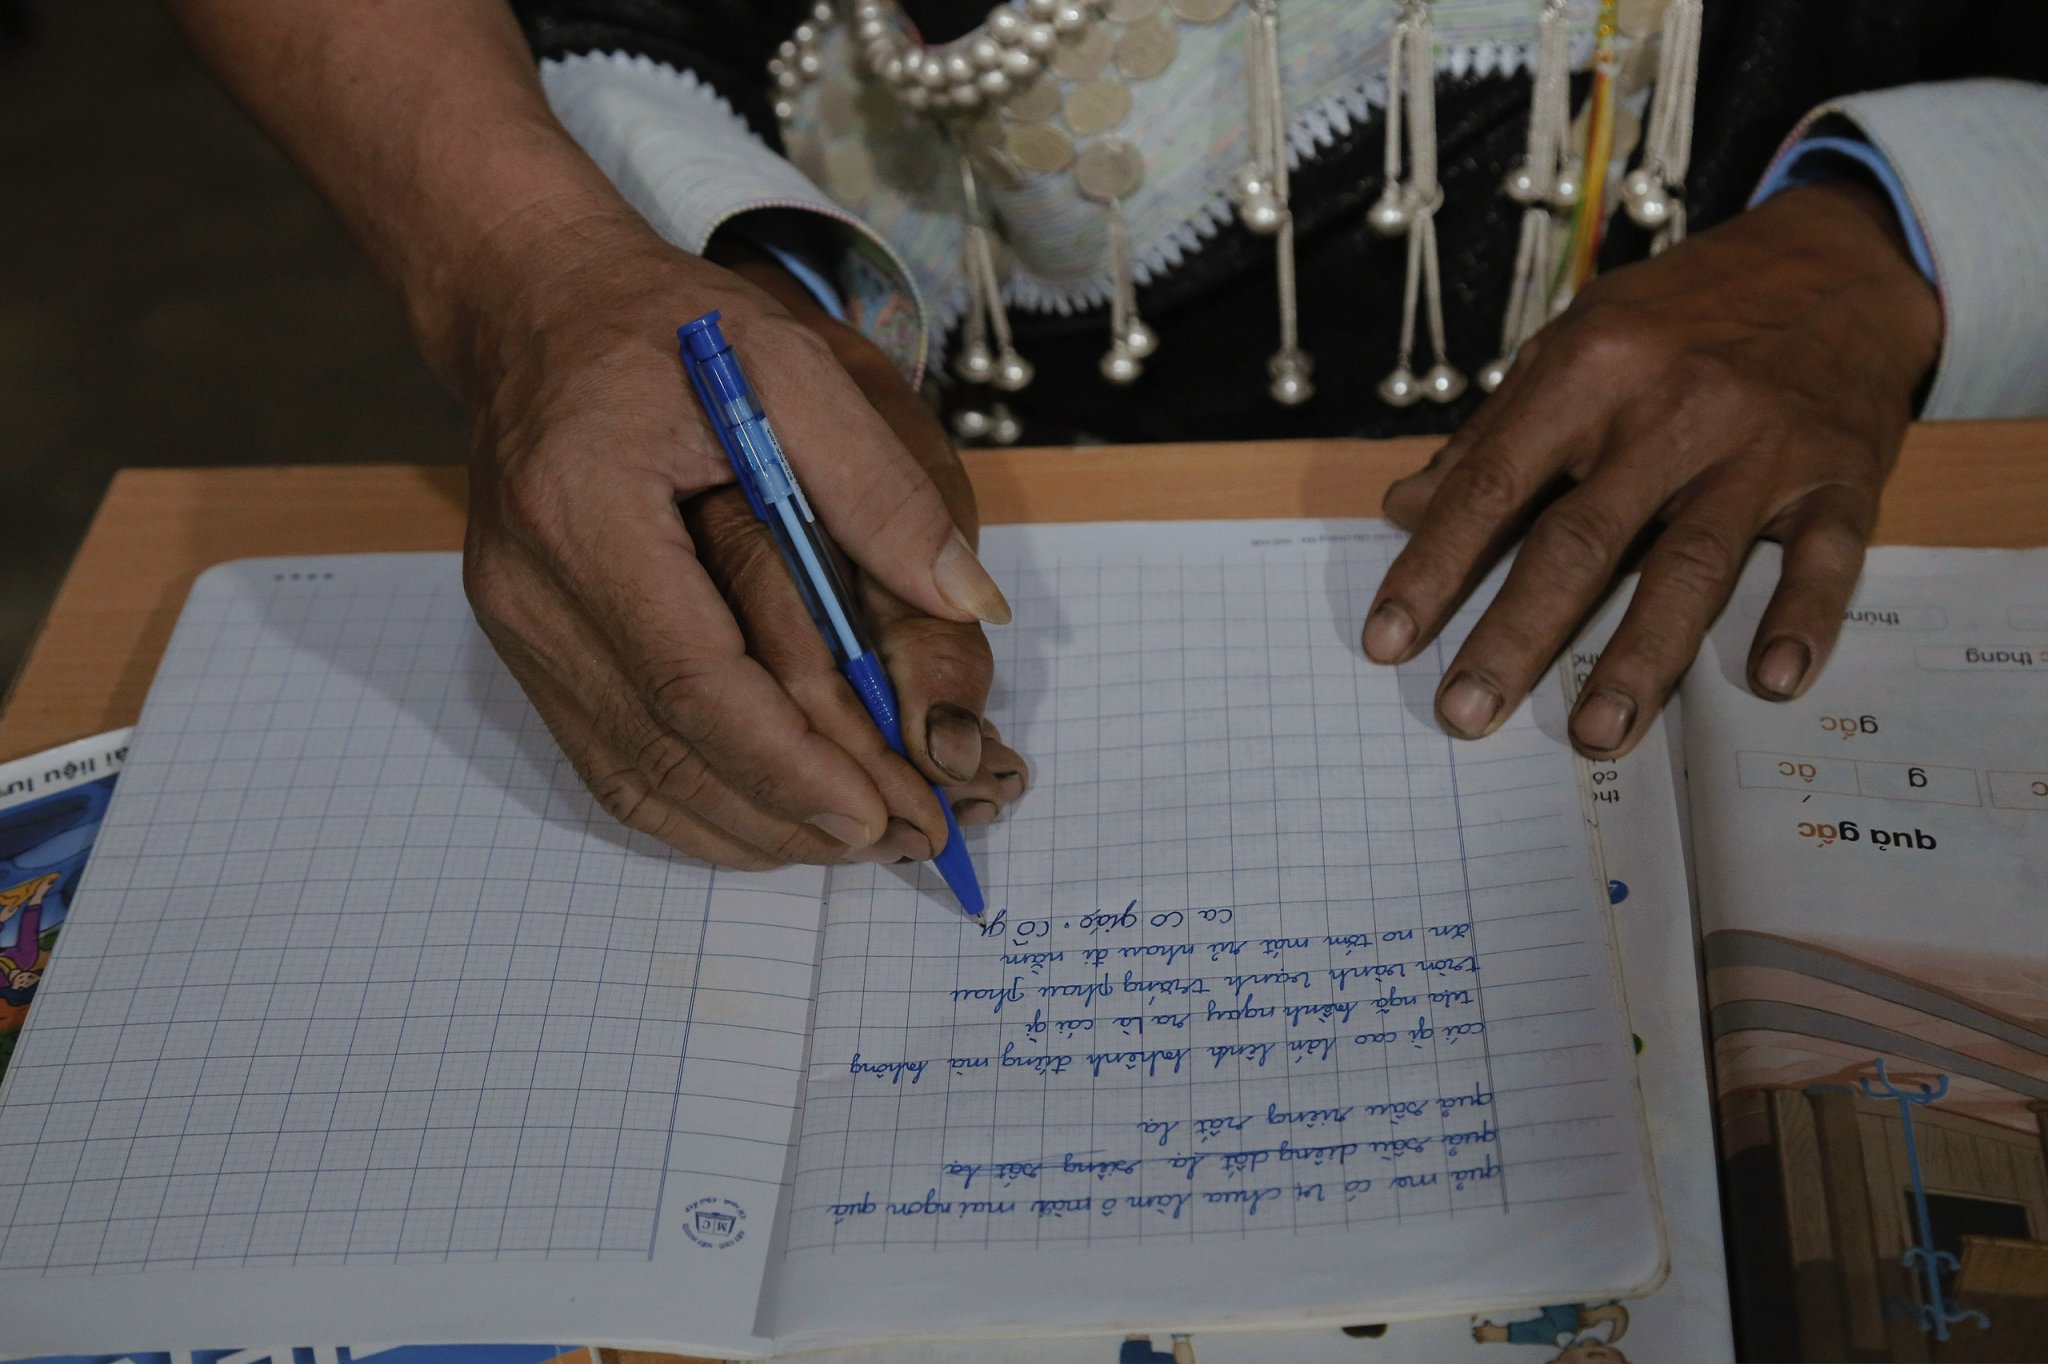 quả mơ có vị chua làm ô mai mai ngon quả
quả sầu diêng dất lạ riêng sất lạ
quả sầu riêng rất lạ
cái gì cao lớn lênh khênh đứng mà không
tựa ngã kềnh ngay ra là cái gì
tròn vành vạnh trắng phau phau
ăn no tắm mát rủ nhau đi nằm
ca cô giáo. cô gi
quả gấc
g
ấc
gấc
c thang
thùng
ài liệu
MC